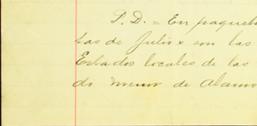 S. D. = En paquete
tas de Julio x son las
Estados locales de las
do menor de Alamo